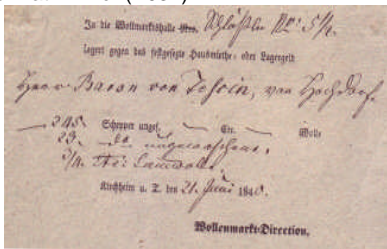 In die Wollmarktshalle Nro. Schlößle No. 5/2.
lagert gegen das festgesetzte Hausmiethe- oder Lagergeld
Herr Baron von Tessin, von Hochdorf.
245 Schepper ungef. Ctr. Wolle
23. do ungewaschene.
3/4 Ctr. Lammwolle.
Kirchheim u. T. den 21. Juni 1840.
Wollenmarkt-Direction.